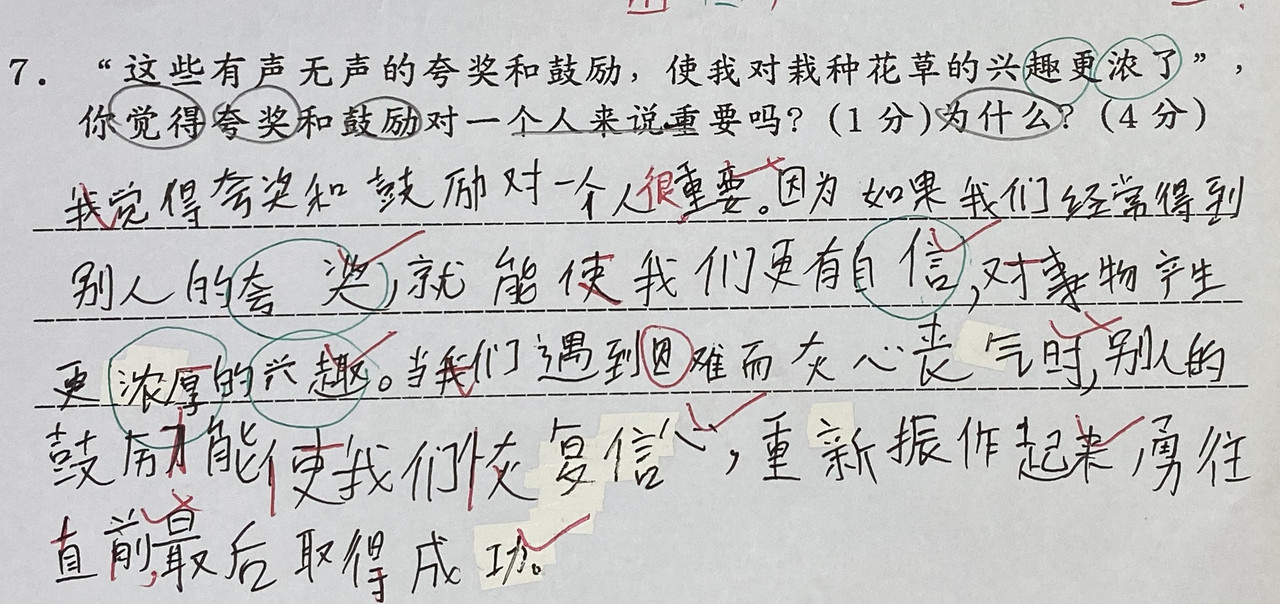 7. “这些有声无声的夸奖和鼓励，使我对栽种花草的兴趣更浓了”，
你觉得夸奖和鼓励对一个人来说重要吗？（1分）为什么？（4分）
我觉得夸奖和鼓励对一个人很重要。因为如果我们经常得到
别人的夸奖，就能使我们更有自信，对事物产生
更浓厚的兴趣。当我们遇到困难而灰心丧气时，别人的
鼓励才能使我们恢复信心，重新振作起来勇往
直前，最后取得成功。